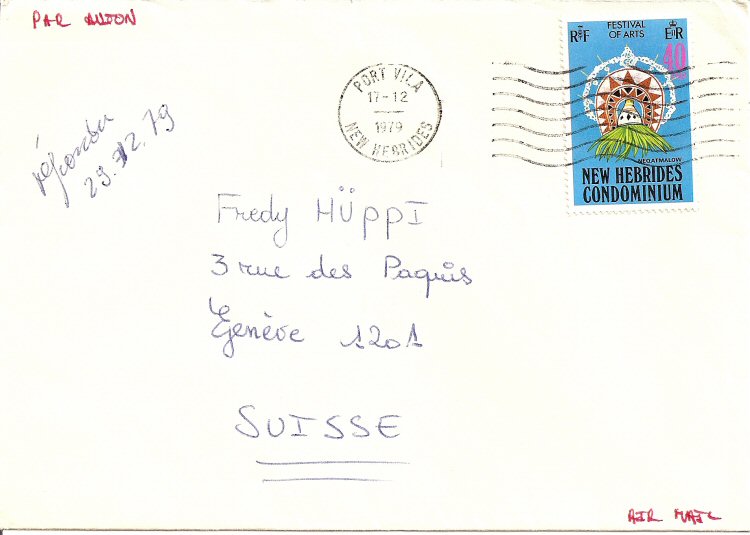 PAR AVION
PORT VILA
17-12
1979
NEW HEBRIDES
RF
FESTIVAL
OF ARTS
EIIR
40
NEQATMALOW
NEW HEBRIDES
CONDOMINIUM
répondu
29.12.79
Fredy HÜPPI
3 rue des Paquis
Genève 1201
SUISSE
AIR MAIL